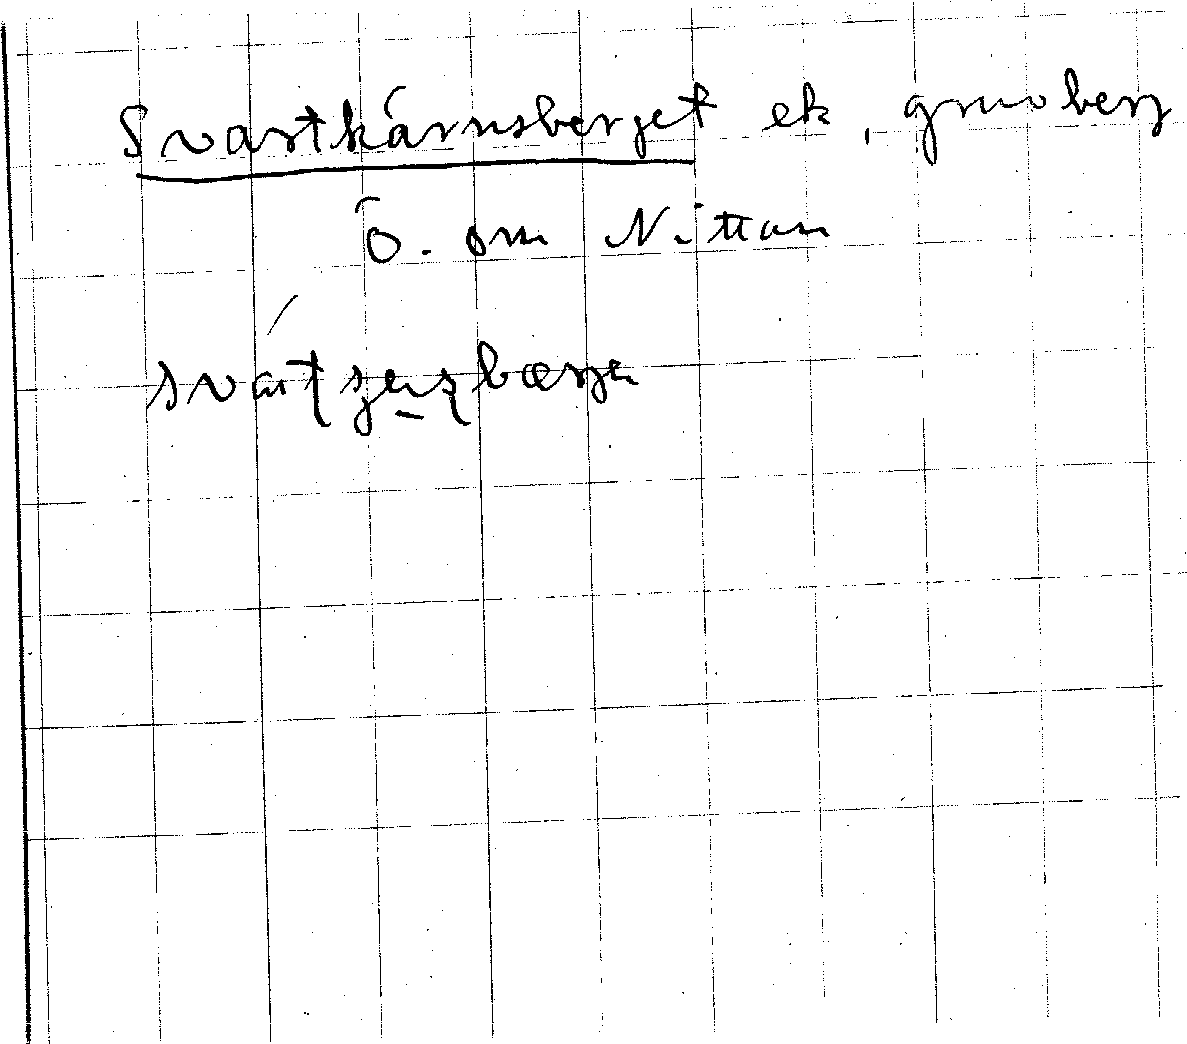 Svartkärnsberget ek, gruvberg
Ö. om Nittan